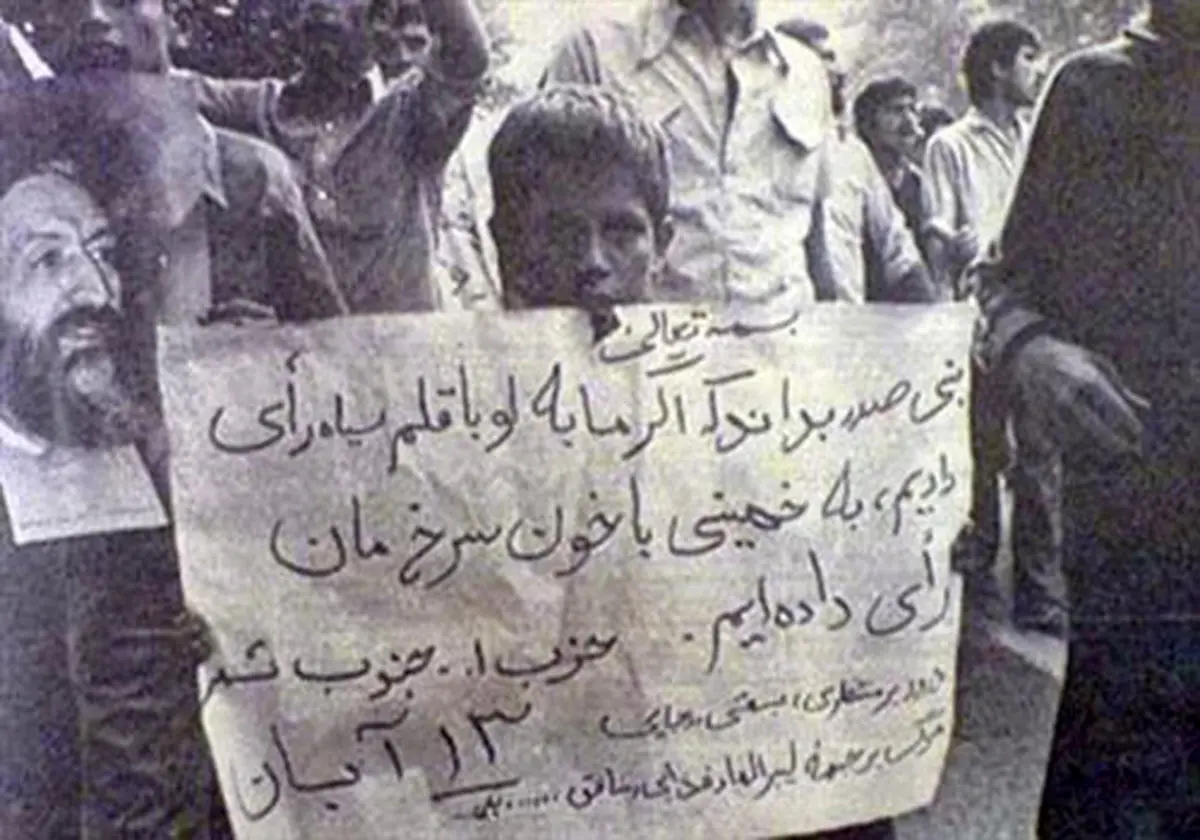 بسمه تعالی
بنی صدر بداند که اگر ما به او با قلم سیاه رأی
دادیم، به خمینی با خون سرخ مان
رأی داده ایم.
حزب ا.. جنوب شهر
درود بر منتظری، بهشتی، رجایی
مرگ بر جبهه لیبرالها، فدایی، منافق ......
۱۳ آبان